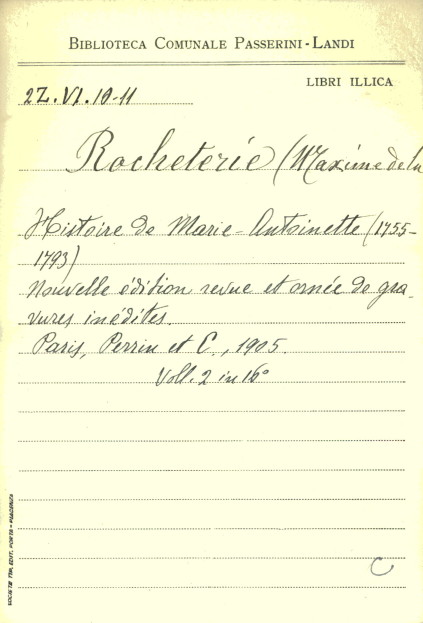 BIBLIOTECA COMUNALE PASSERINI-LANDI
LIBRI ILLICA
2Z.VI.10-11
Rocheterie (Maxime de la
Histoire de Marie-Antoinette (1755-
1793)
Nouvelle édition revue et ornée de gra-
vures inédites.
Paris, Perrin et C., 1905.
Voll. 2 in 16°
SOCIETÀ TIP. EDIT. PORTA - PIACENZA
C